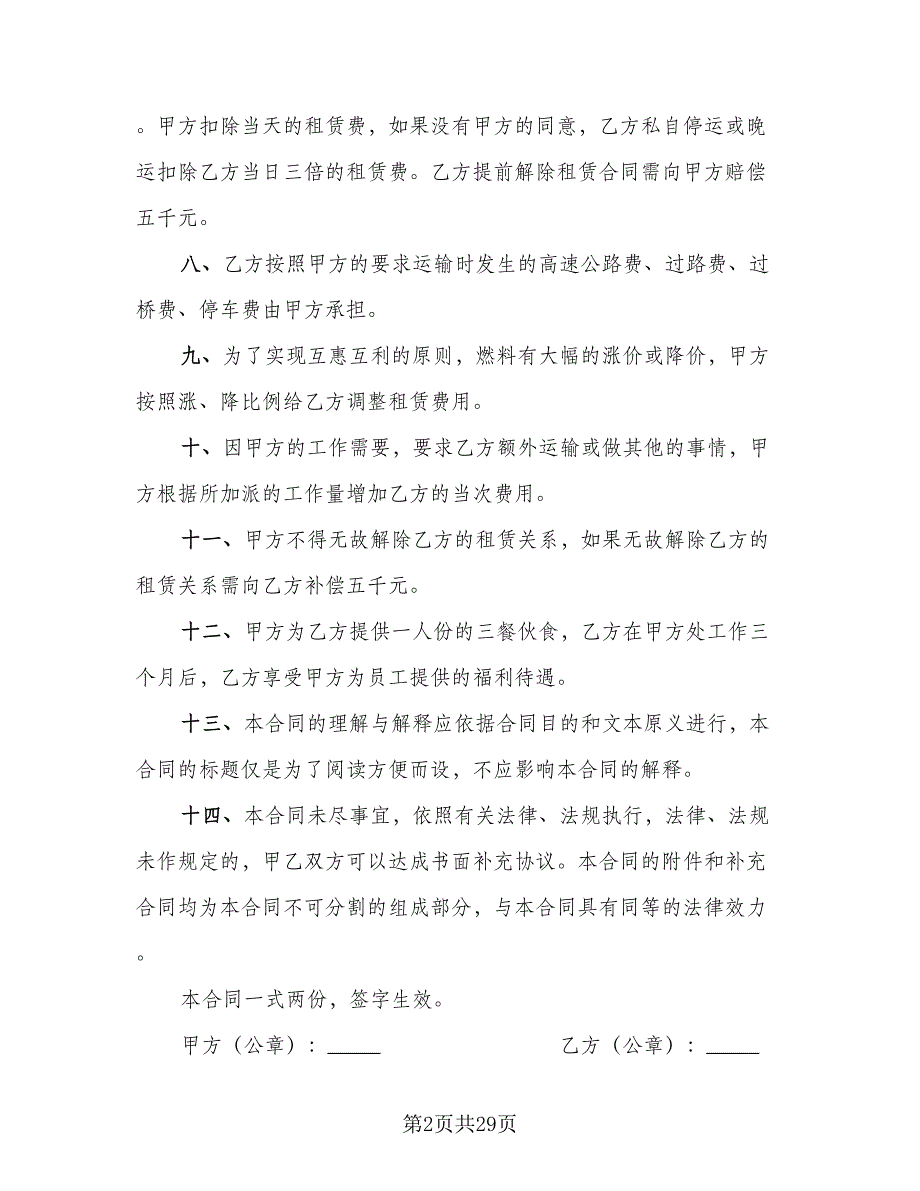 。甲方扣除当天的租赁费，如果没有甲方的同意，乙方私自停运或晚
运扣除乙方当日三倍的租赁费。乙方提前解除租赁合同需向甲方赔偿
五千元。
八、乙方按照甲方的要求运输时发生的高速公路费、过路费、过
桥费、停车费由甲方承担。
九、为了实现互惠互利的原则，燃料有大幅的涨价或降价，甲方
按照涨、降比例给乙方调整租赁费用。
十、因甲方的工作需要，要求乙方额外运输或做其他的事情，甲
方根据所加派的工作量增加乙方的当次费用。
十一、甲方不得无故解除乙方的租赁关系，如果无故解除乙方的
租赁关系需向乙方补偿五千元。
十二、甲方为乙方提供一人份的三餐伙食，乙方在甲方处工作三
个月后，乙方享受甲方为员工提供的福利待遇。
十三、本合同的理解与解释应依据合同目的和文本原义进行，本
合同的标题仅是为了阅读方便而设，不应影响本合同的解释。
十四、本合同未尽事宜，依照有关法律、法规执行，法律、法规
未作规定的，甲乙双方可以达成书面补充协议。本合同的附件和补充
合同均为本合同不可分割的组成部分，与本合同具有同等的法律效力
。
本合同一式两份，签字生效。
甲方（公章）：_____ 乙方（公章）：_____
第2页共29页